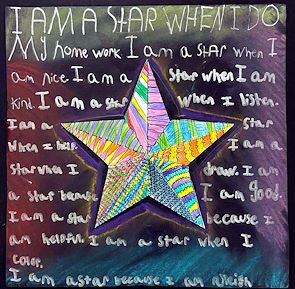 I AM A STAR WHEN I DO
My home work I am a STAR when I
am nice I am a star when I am
kind. I am a star when I listen.
I am a star
when I help. I am a
star when I draw. I am
a star because I am good.
I am a star because I
am helpful. I am a star when I
color.
I am a star because I am